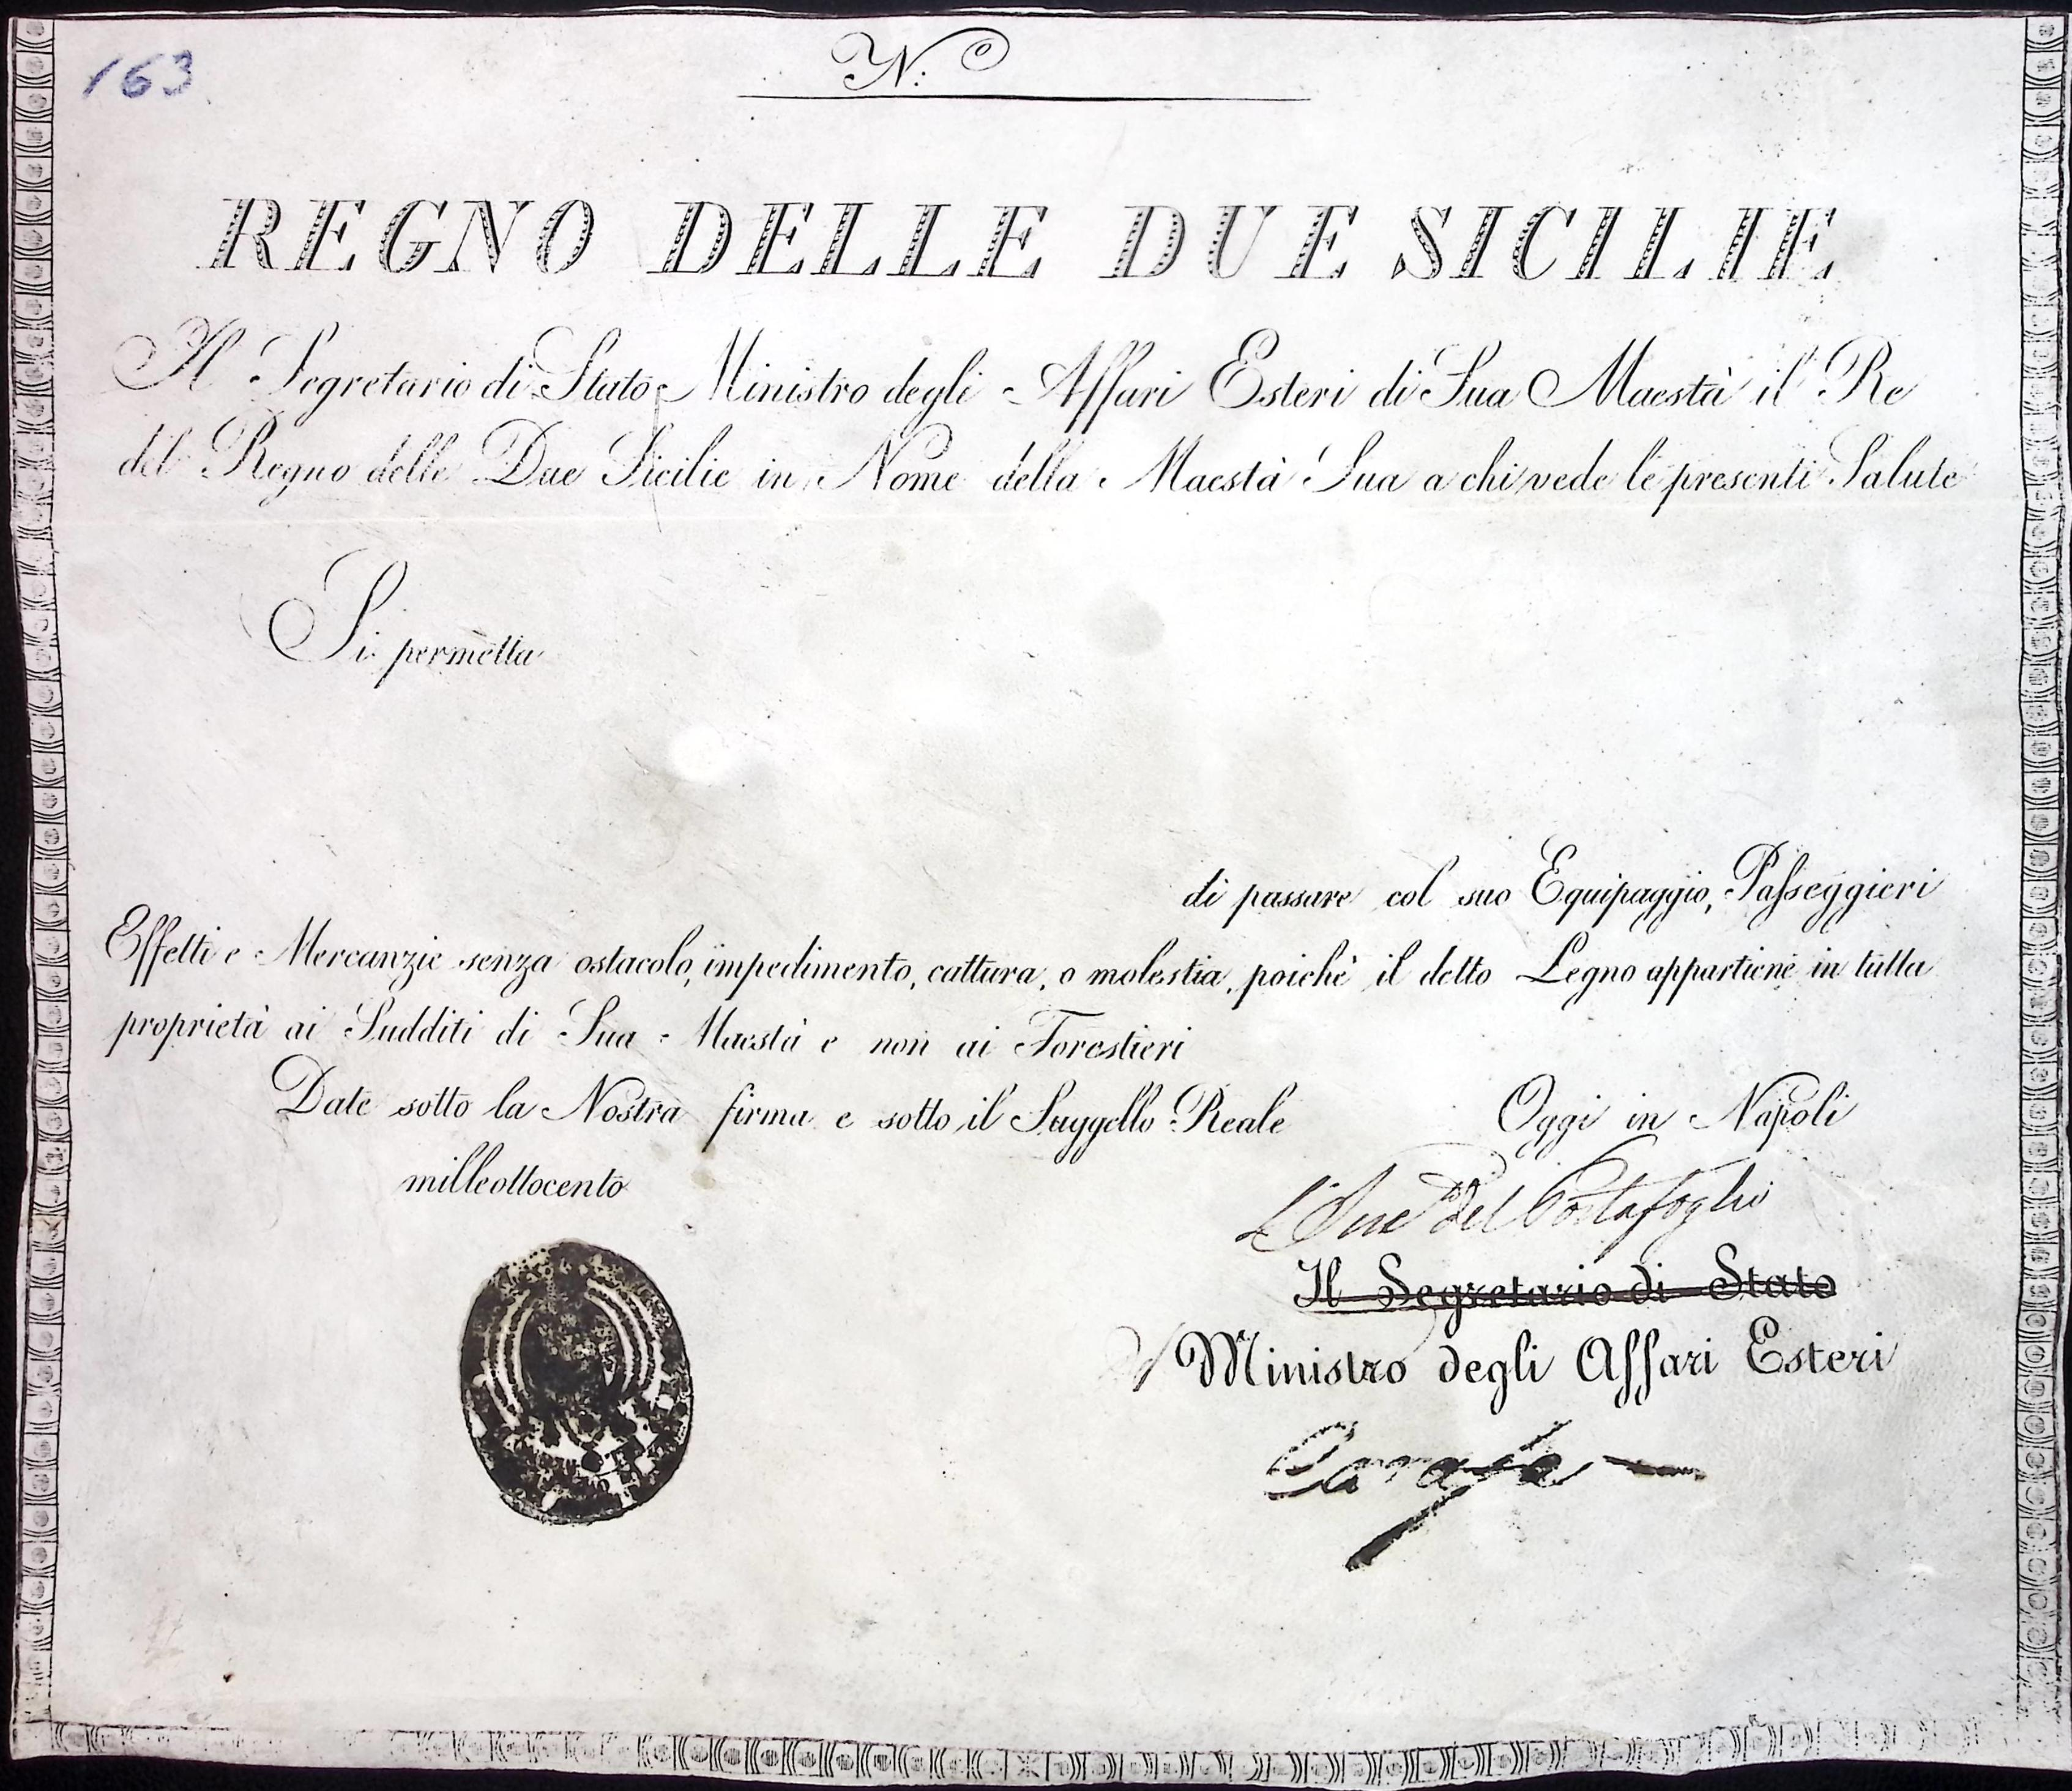 163
N.º
REGNO DELLE DUE SICILIE
Il Segretario di Stato Ministro degli Affari Esteri di Sua Maestà il Re
del Regno delle Due Sicilie in Nome della Maestà Sua a chi vede le presenti Salute
Si permetta
di passare col suo Equipaggio, Passeggieri
Effetti e Mercanzie senza ostacolo, impedimento, cattura, o molestia, poichè il detto Legno appartiene in tutta
proprietà ai Sudditi di Sua Maestà e non ai Forestieri
Date sotto la Nostra firma e sotto il Suggello Reale Oggi in Napoli
milleottocento
del Portafoglio
Il Segretario di Stato
Ministro degli Affari Esteri